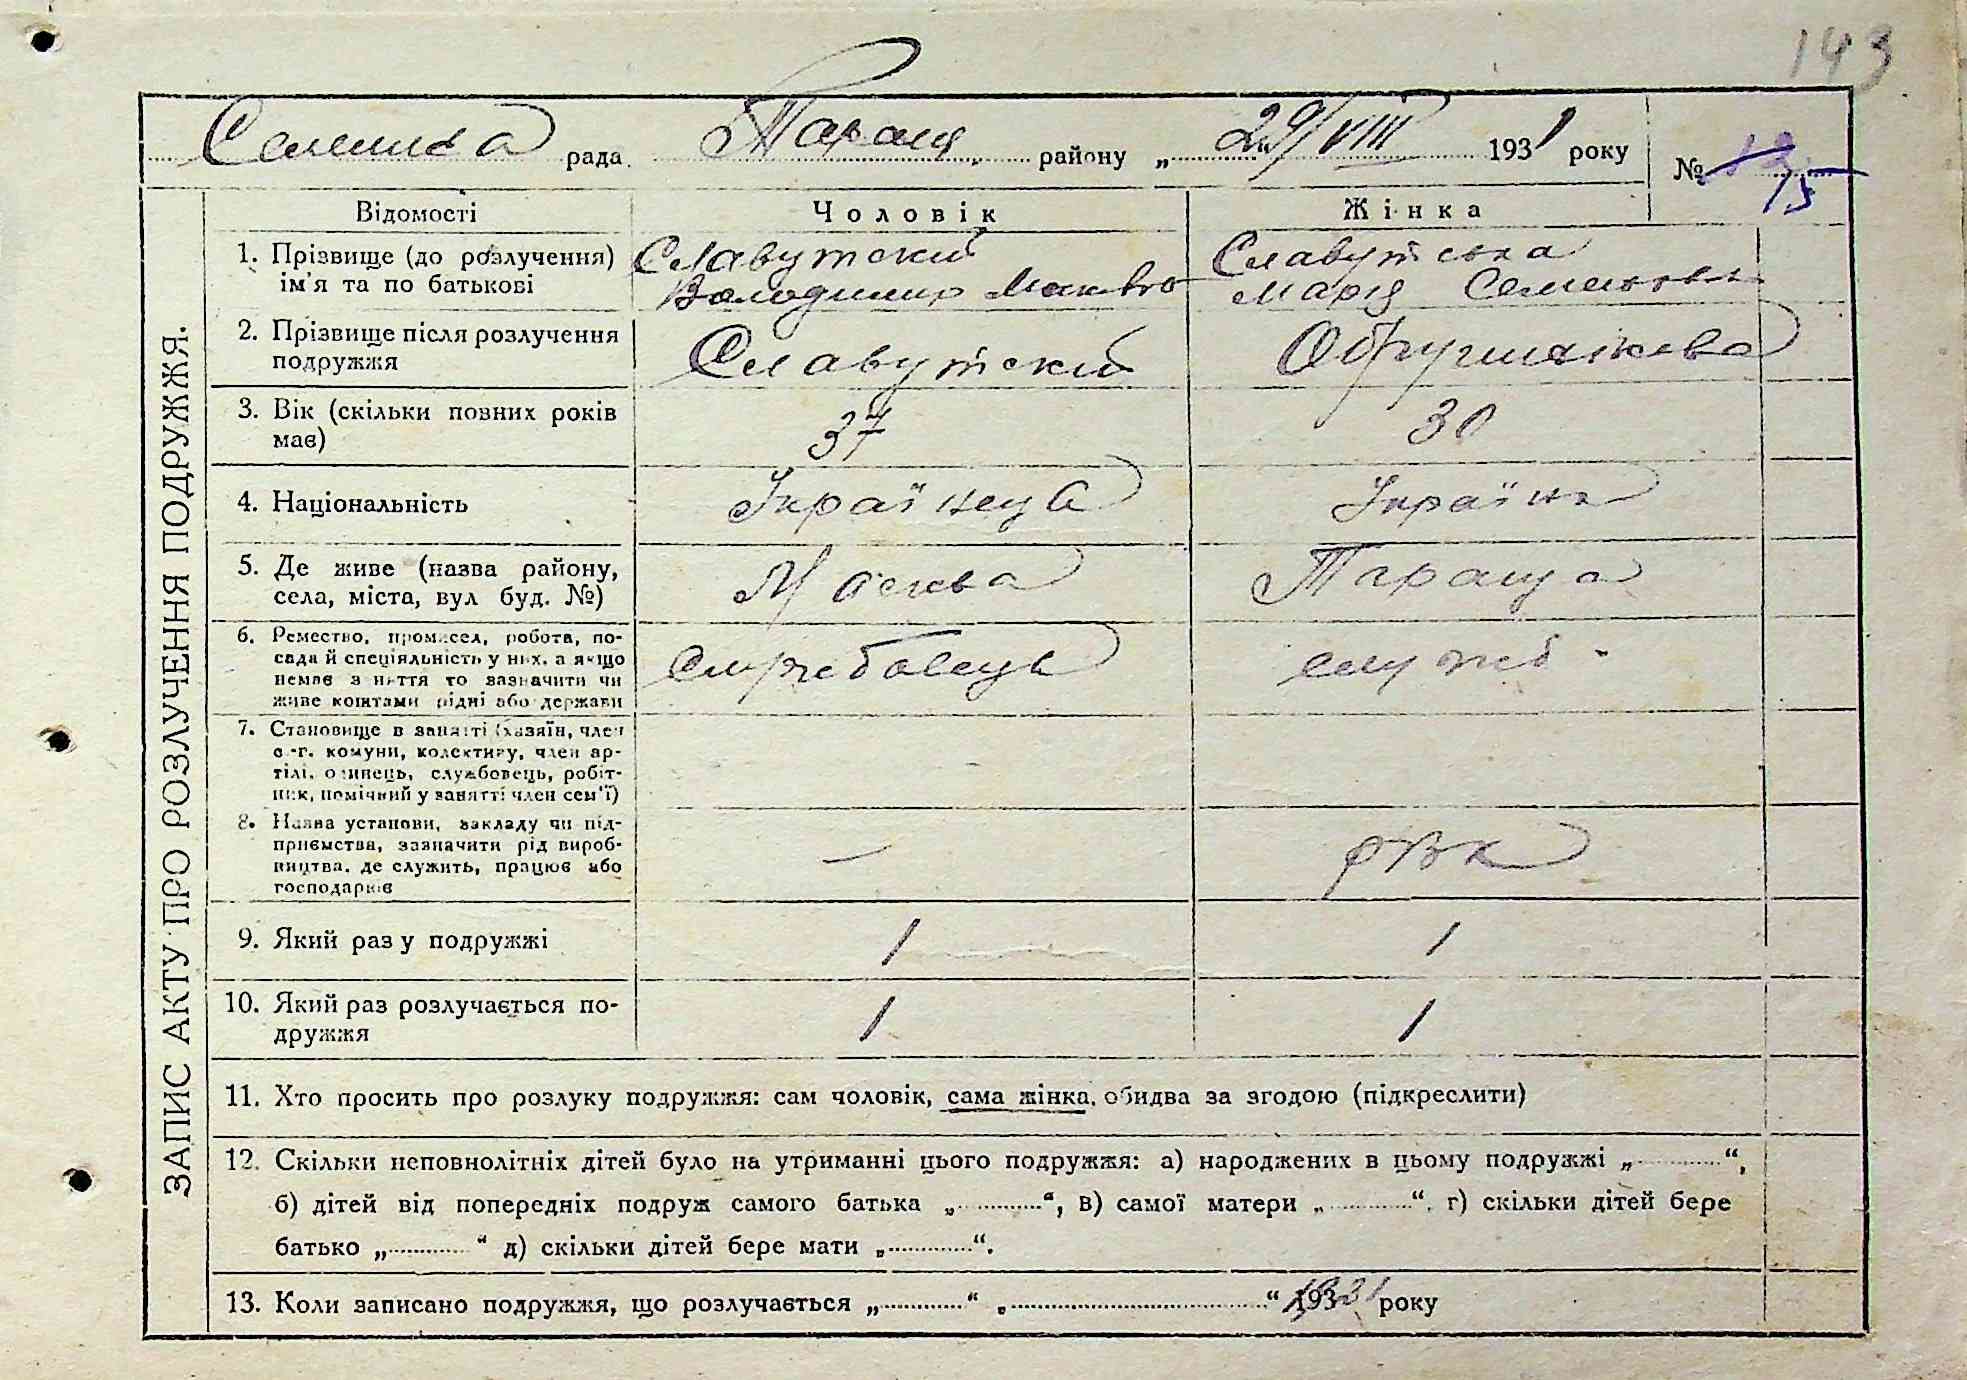 143
Селищна рада Тараща району „29/VIII 1931 року №
15
ЗАПИС АКТУ ПРО РОЗЛУЧЕННЯ ПОДРУЖЖЯ.
Відомості Чоловік Жінка
1. Прізвище (до розлучення) Славутский Славутська
ім'я та по батькові Володимир Марія Семеновн
2. Прізвище після розлучення
подружжя Славутский
3. Вік (скільки повних років 37 30
має)
4. Національність Українець Україн
5. Де живе (назва району, Москва Тараща
села, міста, вул буд. №)
6. Ремество, промисел, робота, по-
сада й спеціяльність у них, а якщо Службовець служб.
немає з няття то зазначити чи
живе коштами рідні або держави
7. Становище в занятті (хазяїн, член
с.-г. комуни, колективу, член ар-
тілі, одинець, службовець, робіт-
ник, помічний у занятті член сем'ї)
8. Назва установи, закладу чи під-
приємства, зазначити рід вироб- — РВК
ництва, де служить, працює або
господарює
9. Який раз у подружжі 1 1
10. Який раз розлучається по- 1 1
дружжя
11. Хто просить про розлуку подружжя: сам чоловік, сама жінка, обидва за згодою (підкреслити)
12. Скільки неповнолітніх дітей було на утриманні цього подружжя: а) народжених в цьому подружжі „............“,
б) дітей від попередніх подруж самого батька „............“, в) самої матери „............“. г) скільки дітей бере
батько „............“ д) скільки дітей бере мати „............“.
13. Коли записано подружжя, що розлучається „............“ „..............................“ 193 року